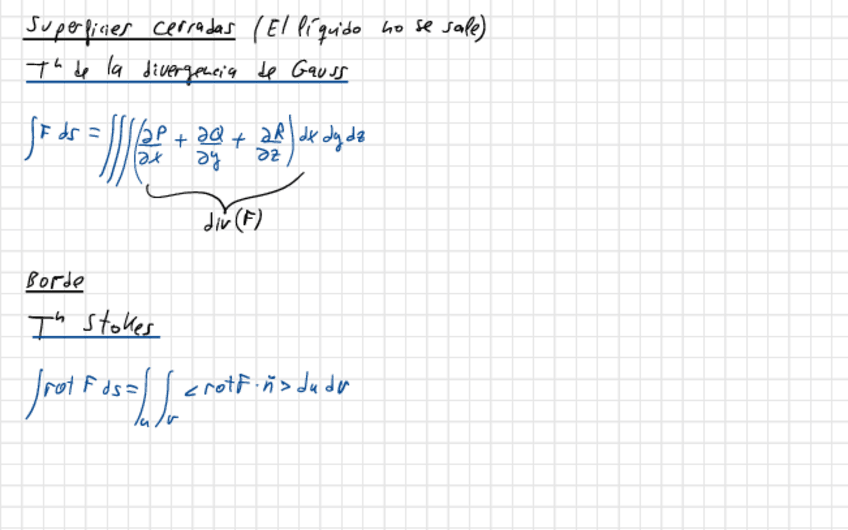 Superficies cerradas (El líquido no se sale)
Tʰ de la divergencia de Gauss
∫F ds = ∭(∂P/∂x + ∂Q/∂y + ∂R/∂z) dx dy dz
div(F)
Borde
Tʰ Stokes
∫rot F ds = ∫_u ∫_v <rotF · n̄> du dv